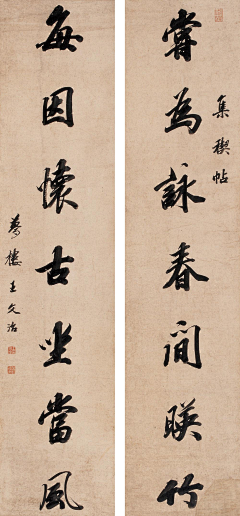 嘗為詠春閒暎竹
集禊帖
每因懷古坐當風
夢樓王文治